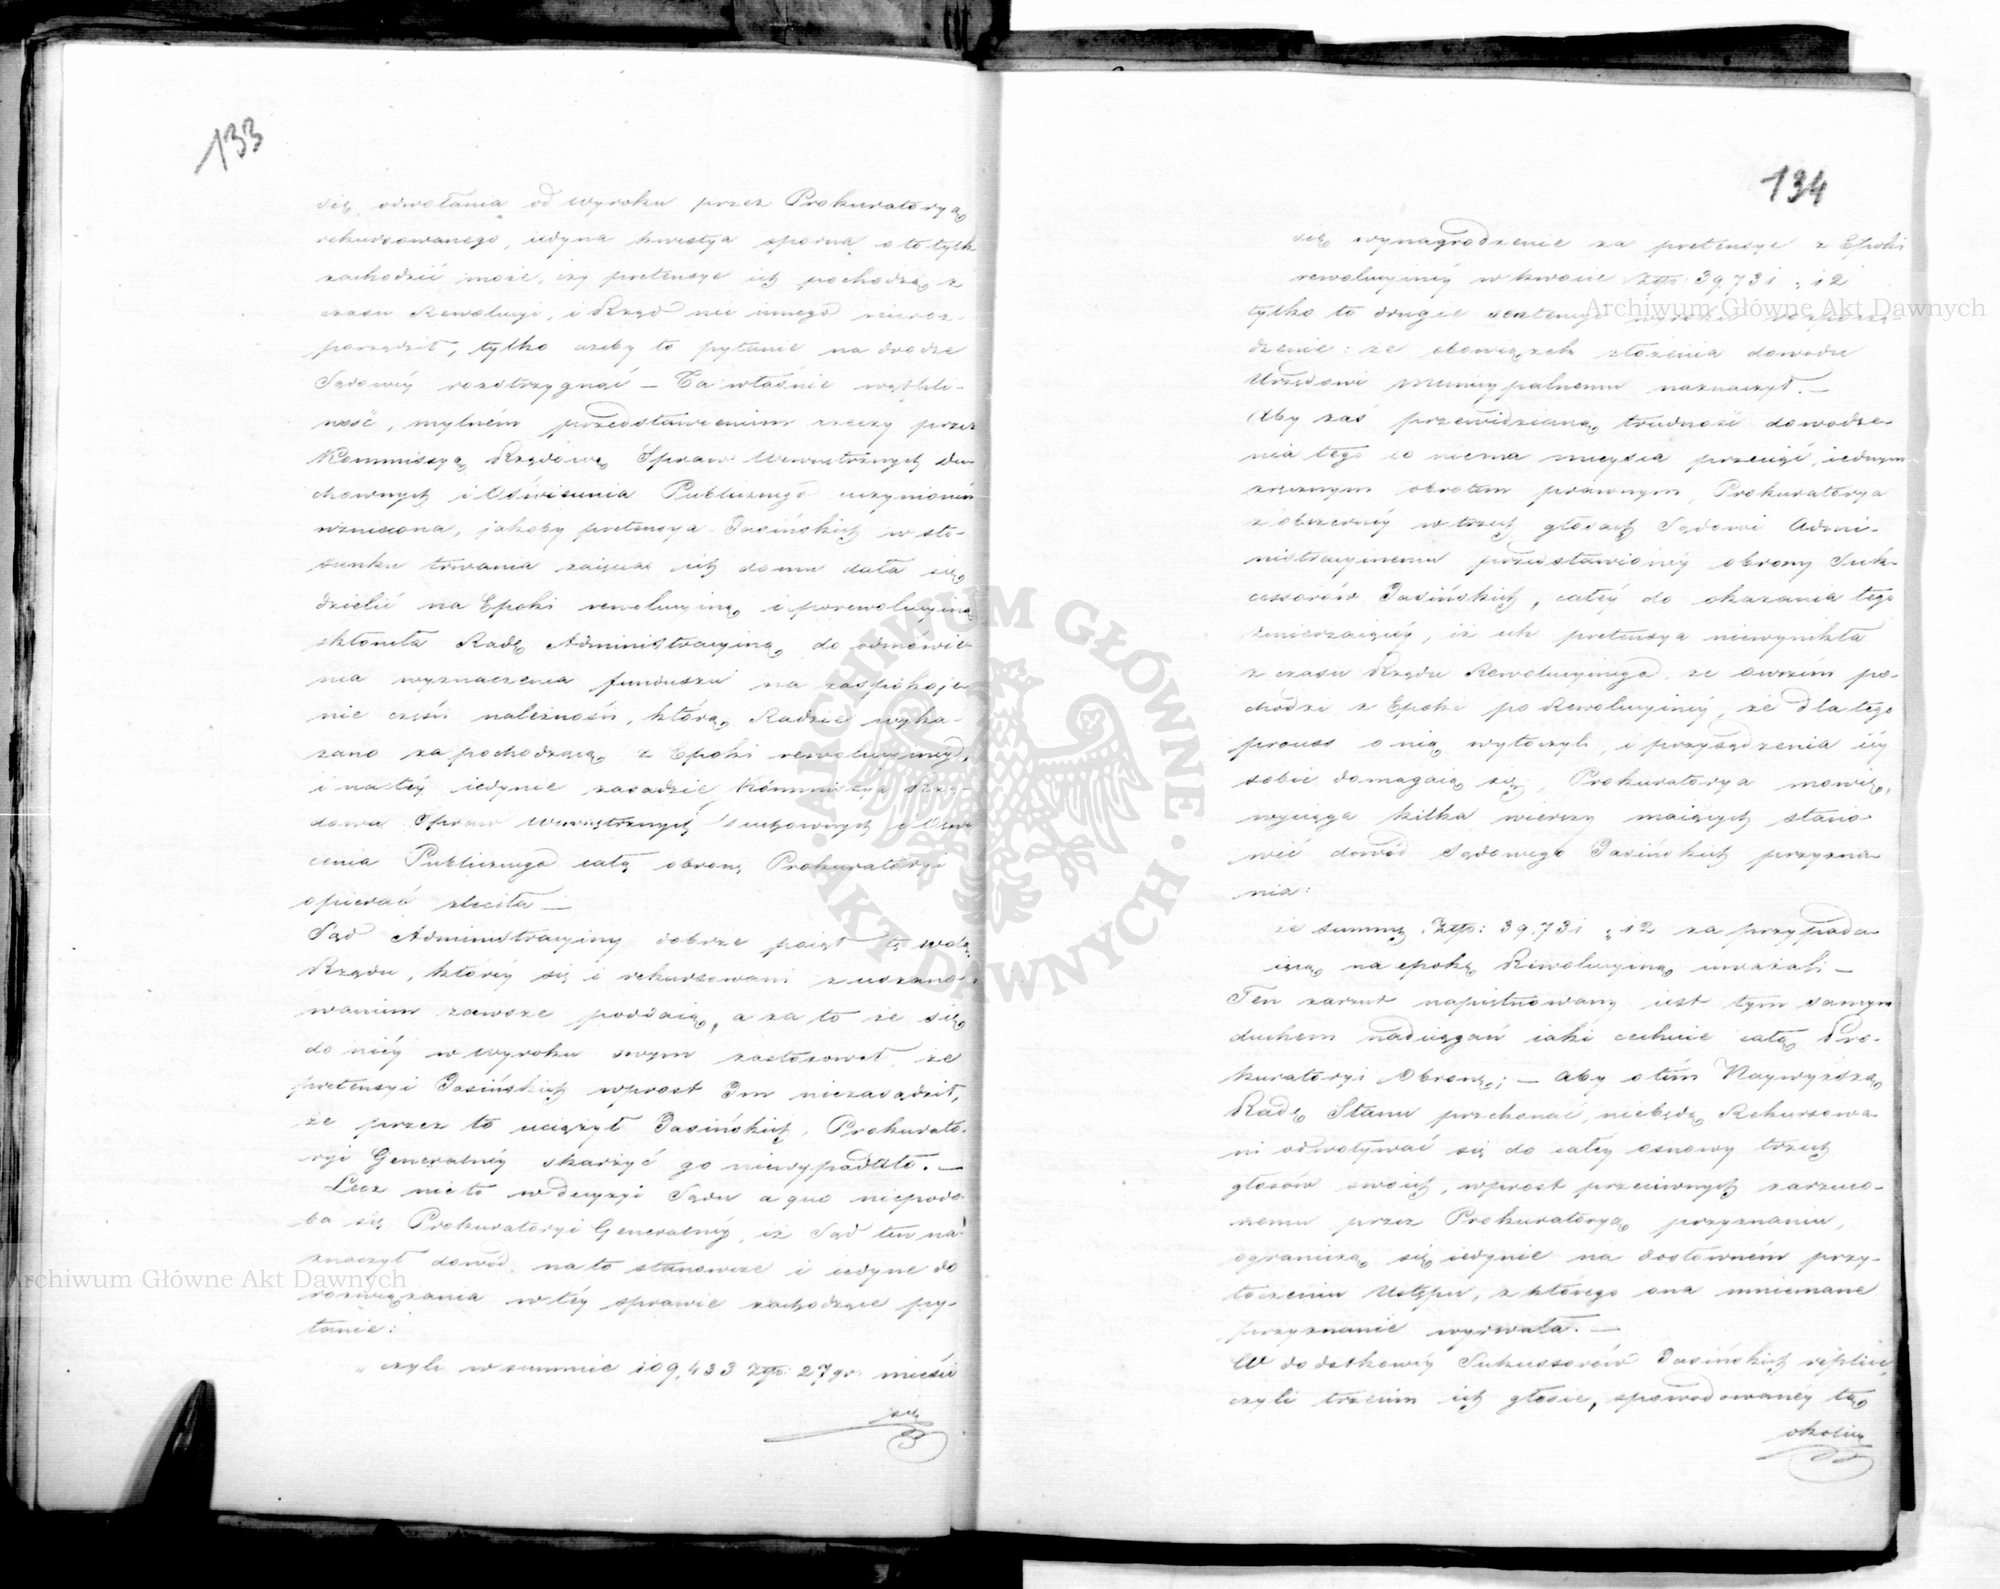 133
się odwołania od wyroku przez Prokuratoryą
rekursowanego, iedyna kwestya sporna o to tylk
zachodzić może, czy pretensye ich pochodzą z
czasu Rewolucyi, i Rząd nic innego nieroz-
porządził, tylko ażeby to pytanie na drodze
Sądowéy rozstrzygnąć — Ta właśnie wątpli-
wość, mylném przedstawieniem rzeczy przez
Kommissyą Rządową Spraw Wewnętrznych Du-
chownych i Oświecenia Publicznego uczynioném
wzniecona, jakoby pretensya Jasińskich w sto-
sunku trwania zaięcia ich domu dała się
dzielić na Epoki rewolucyiną i porewolucyiną
skłoniła Radę Administracyiną do odmówie-
nia wyznaczenia funduszu na zaspokoje-
nie części należności, którą Radzie wyka-
zano za pochodzącą z Epoki rewolucyinéy,
i na téy iedynie zasadzie Kommissya Rzą-
dowa Spraw Wewnętrznych Duchownych i Oświe
cenia Publicznego całą obronę Prokuratoryi
opierać zleciła —
Sąd Administracyiny dobrze poiął tę wolą
Rządu, któréy się i rekursowani z uszano-
waniem zawsze poddaią, a za to że się
do niéy w wyroku swym zastosował, że
pretensyi Jasińskich wprost Im niezasądził,
że przez to uciążył Jasińskich, Prokurato-
ryi Generalnéy skarżyć go niewypadało. —
Lecz nie to w decyzyi Sądu a quo niepodo-
ba się Prokuratoryi Generalnéy, iż Sąd ten na-
znaczył dowód na to stanowcze i iedyne do
rozwiązania w téy sprawie zachodzące py-
tanie:
"czyli w summie 109,433 Złp: 27 gr. mieści
się
134
się wynagrodzenie za pretensye z Epoki
rewolucyinéy w kwocie Złp: 39,731 „12
tylko to drugie sentencyi wyroku rozporzą-
dzenie: że obowiązek złożenia dowodu
Urzędowi Municypalnemu naznaczył. —
Aby zaś przewidzianą trudność dowodze-
nia tego co niema mieysca przeiąć, iednym
zręcznym obrotem prawnym, Prokuratorya
z obszernéy w trzech głosach Sądowi Admi-
nistracyinemu przedstawionéy obrony Suk-
cessorów Jasińskich, całéy do okazania tego
zmierzaiącéy, iż ich pretensya niewynikła
z czasu Rządu Rewolucyinego, że owszem po-
chodzi z Epoki po Rewolucyinéy, że dla tego
process o nią wytoczyli, i przysądzenia iéy
sobie domagaią się, Prokuratorya mówię,
wyciąga kilka wierszy maiących stano-
wić dowód Sądowego Jasińskich przyzna-
nia:
że summę Złp: 39,731 „12 za przypada-
iącą na epokę Rewolucyiną uważali —
Ten zarzut napiętnowany iest tym samym
duchem naciągań iaki cechuie całą Pro-
kuratoryi Obronę; — Aby o tém Naywyższą
Radę Stanu przekonać, niebędą Rekursowa-
ni odwoływać się do całéy osnowy trzech
głosów swoich, wprost przeciwnych zarzuco-
nemu przez Prokuratoryą przyznaniu,
ograniczą się iedynie na dosłowném przy-
toczeniu Ustępu, z którego ona mniemane
przyznanie wyrwała. —
W dodatkowéy Sukcessorów Jasińskich replice,
czyli trzecim ich głosie, spowodowanéy tą
okolicz
Archiwum Główne Akt Dawnych
Archiwum Główne Akt Dawnych
ARCHIWUM GŁÓWNE · AKT DAWNYCH ·